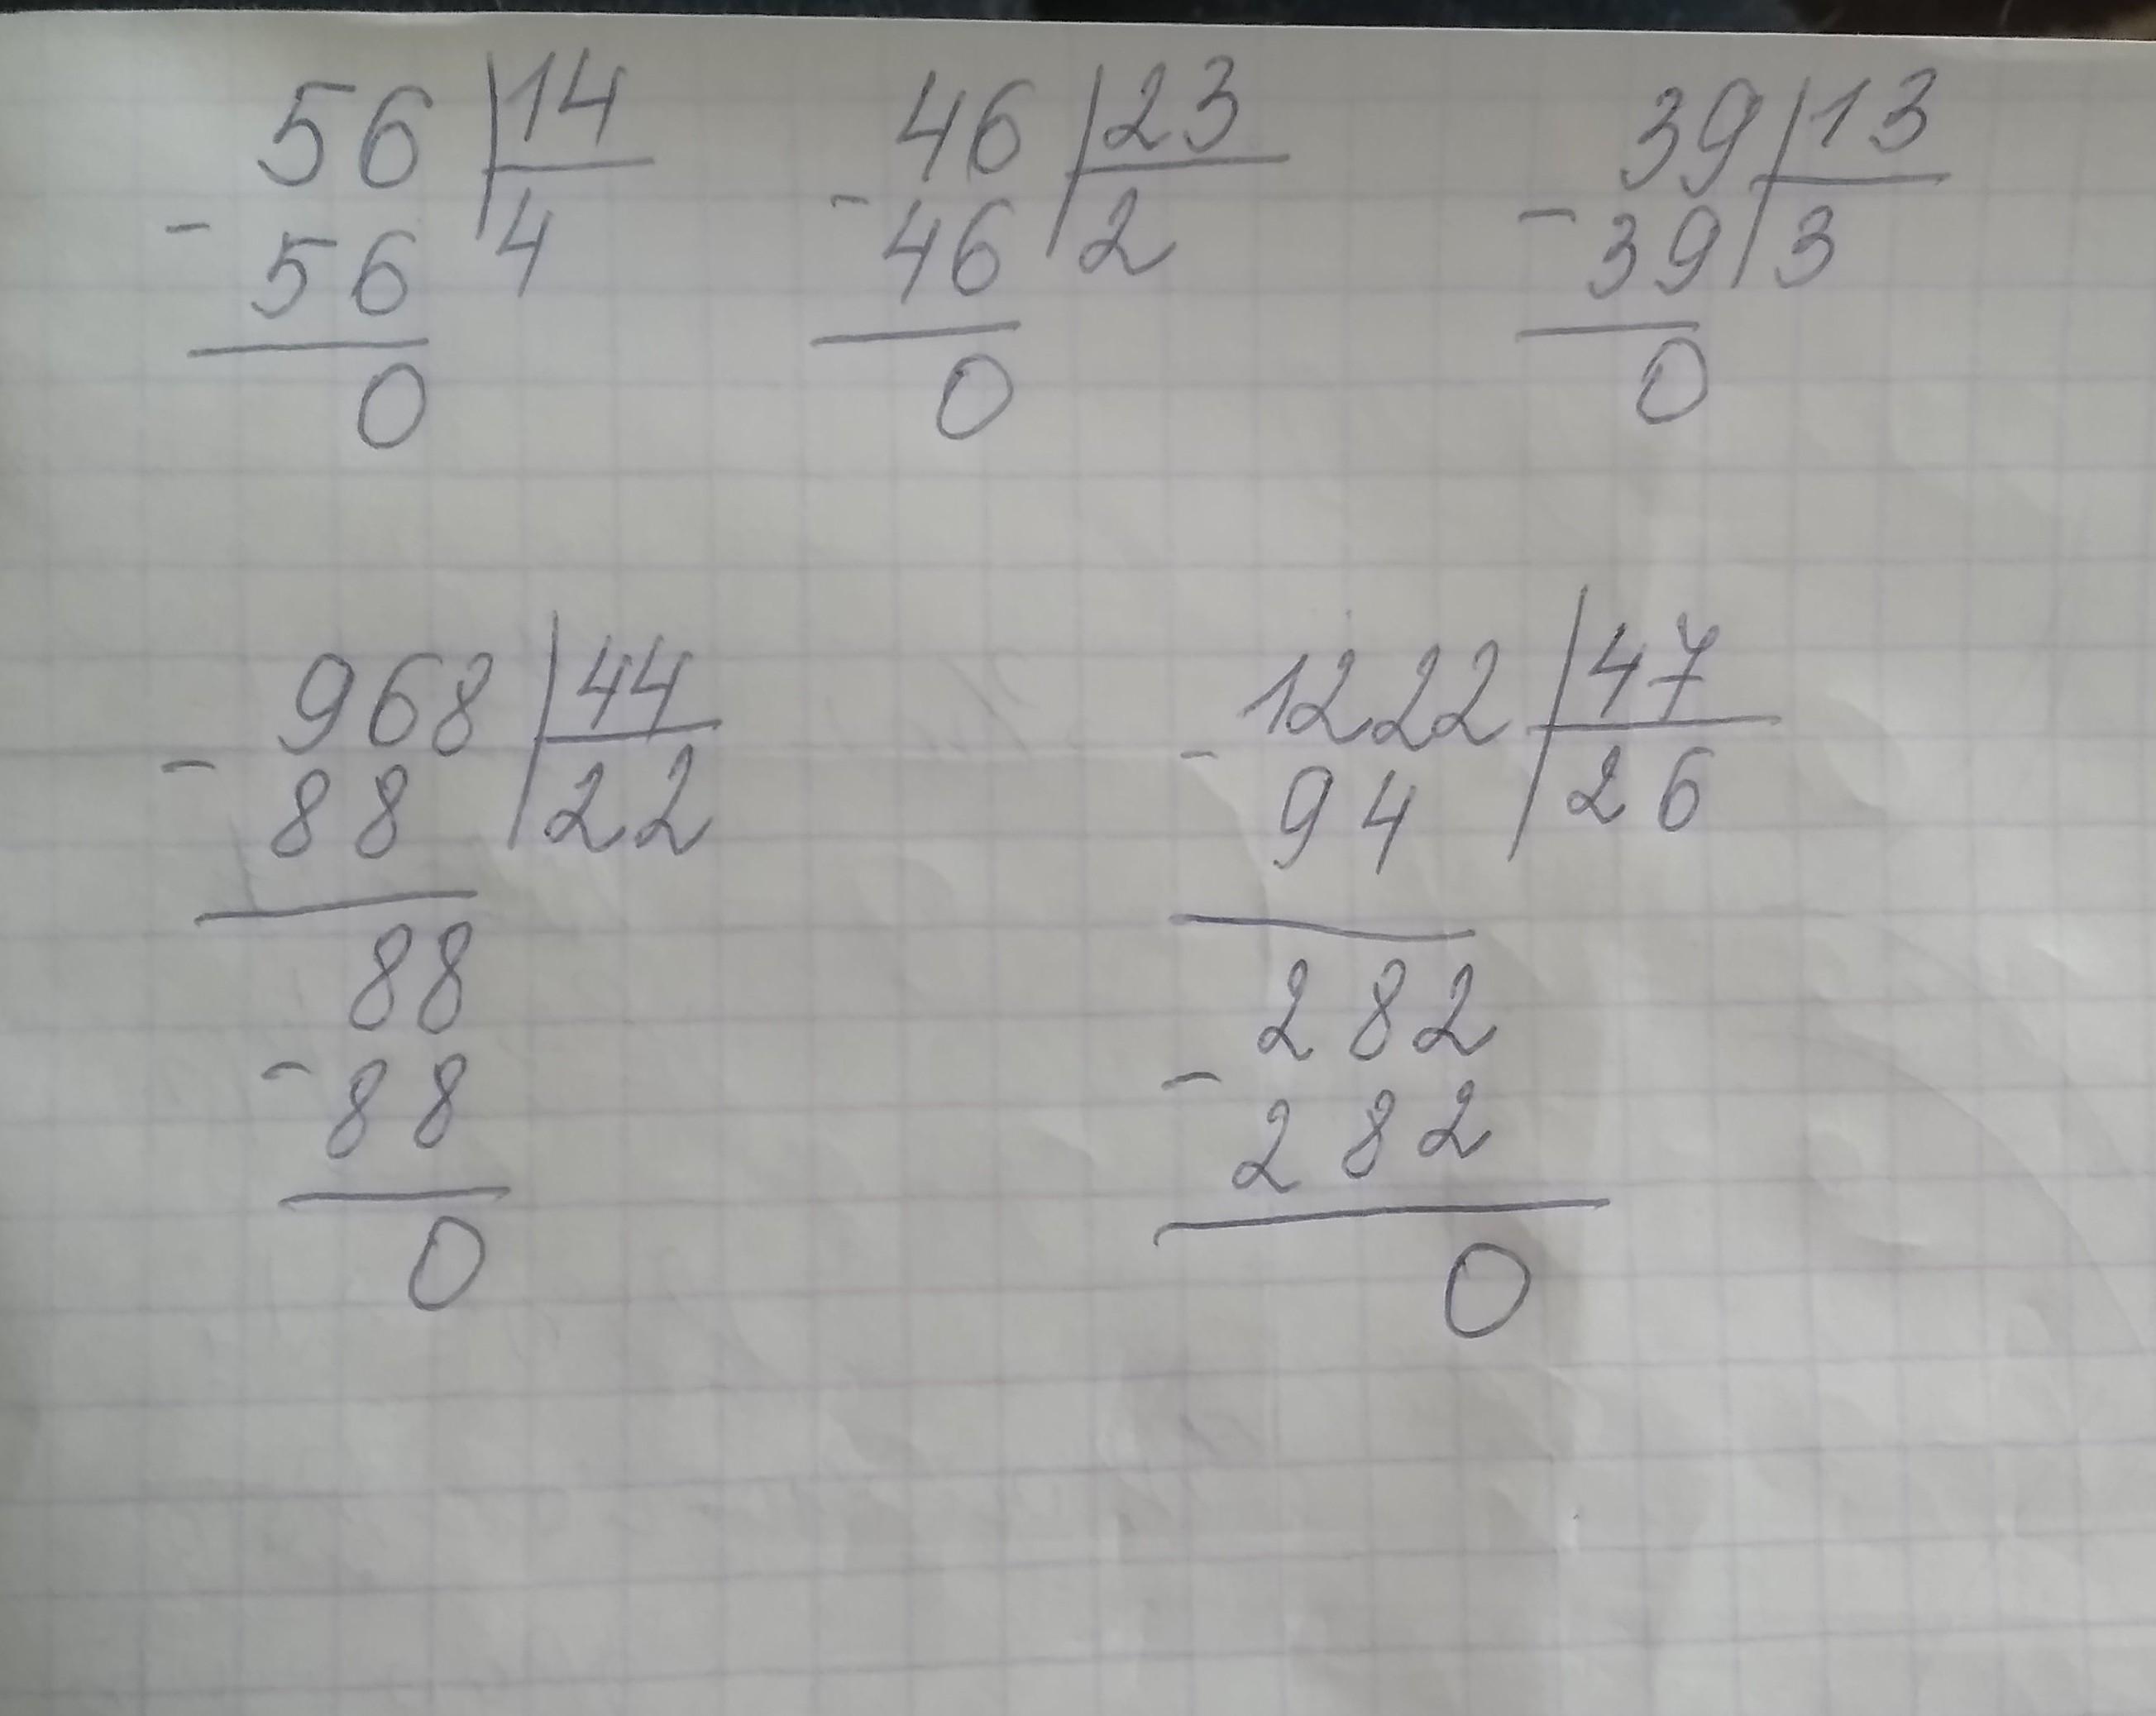 56 14
- 56 4
0
46 23
- 46 2
0
39 13
- 39 3
0
968 44
- 88 22
88
- 88
0
1222 47
- 94 26
282
- 282
0